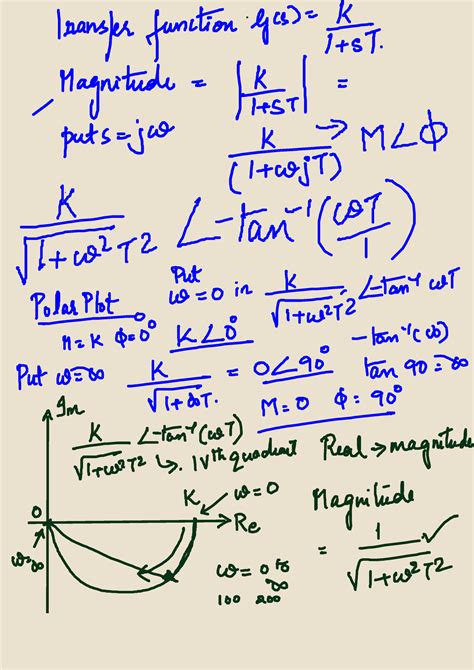 Transfer function G(s) = K / 1+sT.
Magnitude = |K / 1+sT| =
put s = jω
K / (1+ωjT) → M∠Φ
K / √1+ω²T² ∠-tan⁻¹(ωT/1)
Polar Plot
Put ω=0 in K / √1+ω²T² ∠-tan⁻¹ωT
M=K Φ=0° K∠0°
Put ω=∞ K / √1+∞T. = 0∠90° -tan⁻¹(∞)
tan 90=∞
M=0 Φ=90°
Im
K / √1+ω²T² ∠-tan⁻¹(ωT)
↳. IVth quadrant
Real → magnitude
K ω=0
0
Re
ω=∞
Magnitude
= 1 / √1+ω²T²
ω = 0 to ∞
100 200